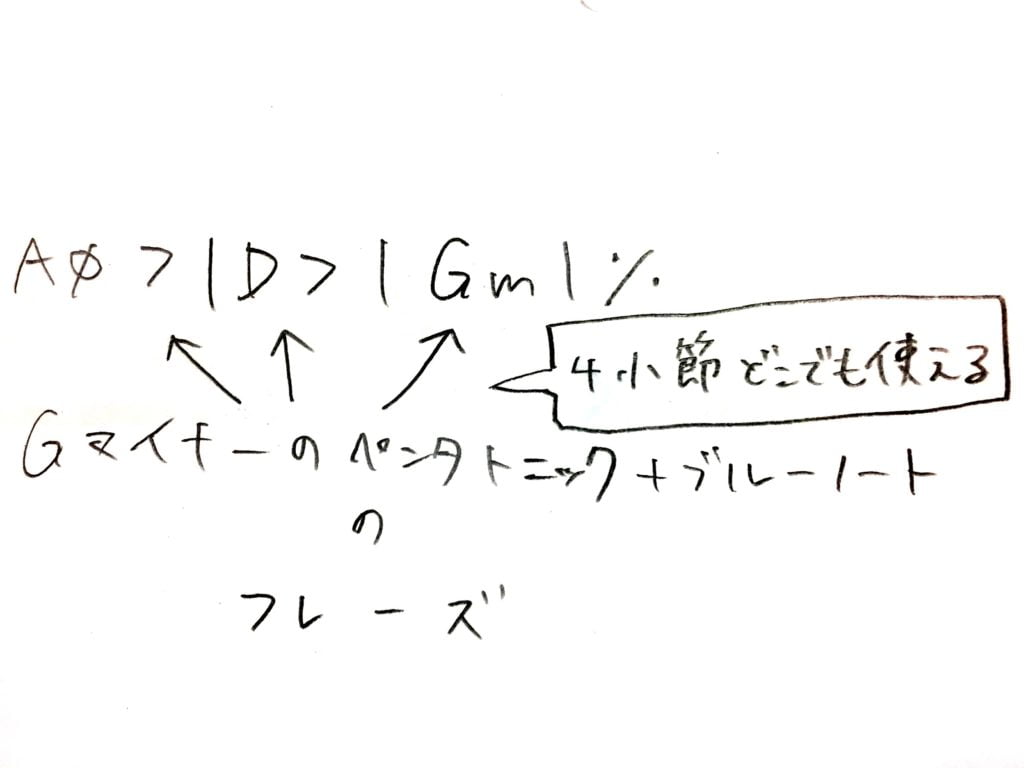 Aø7 | D7 | Gm | %
4小節どこでも使える
Gマイナーのペンタトニック+ブルーノート
の
フレーズ